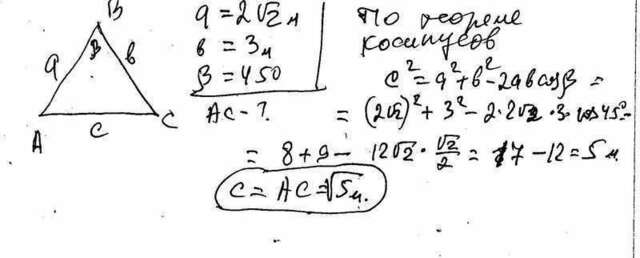 B
β
a
b
A
c
C
a = 2√2 м
b = 3 м
β = 450
AC - ?
По теореме
косинусов
c² = a² + b² - 2ab cosβ =
= (2√2)² + 3² - 2·2√2·3·cos45° =
= 8 + 9 - 12√2 · √2/2 = 17 - 12 = 5 м
c = AC = √5 м.